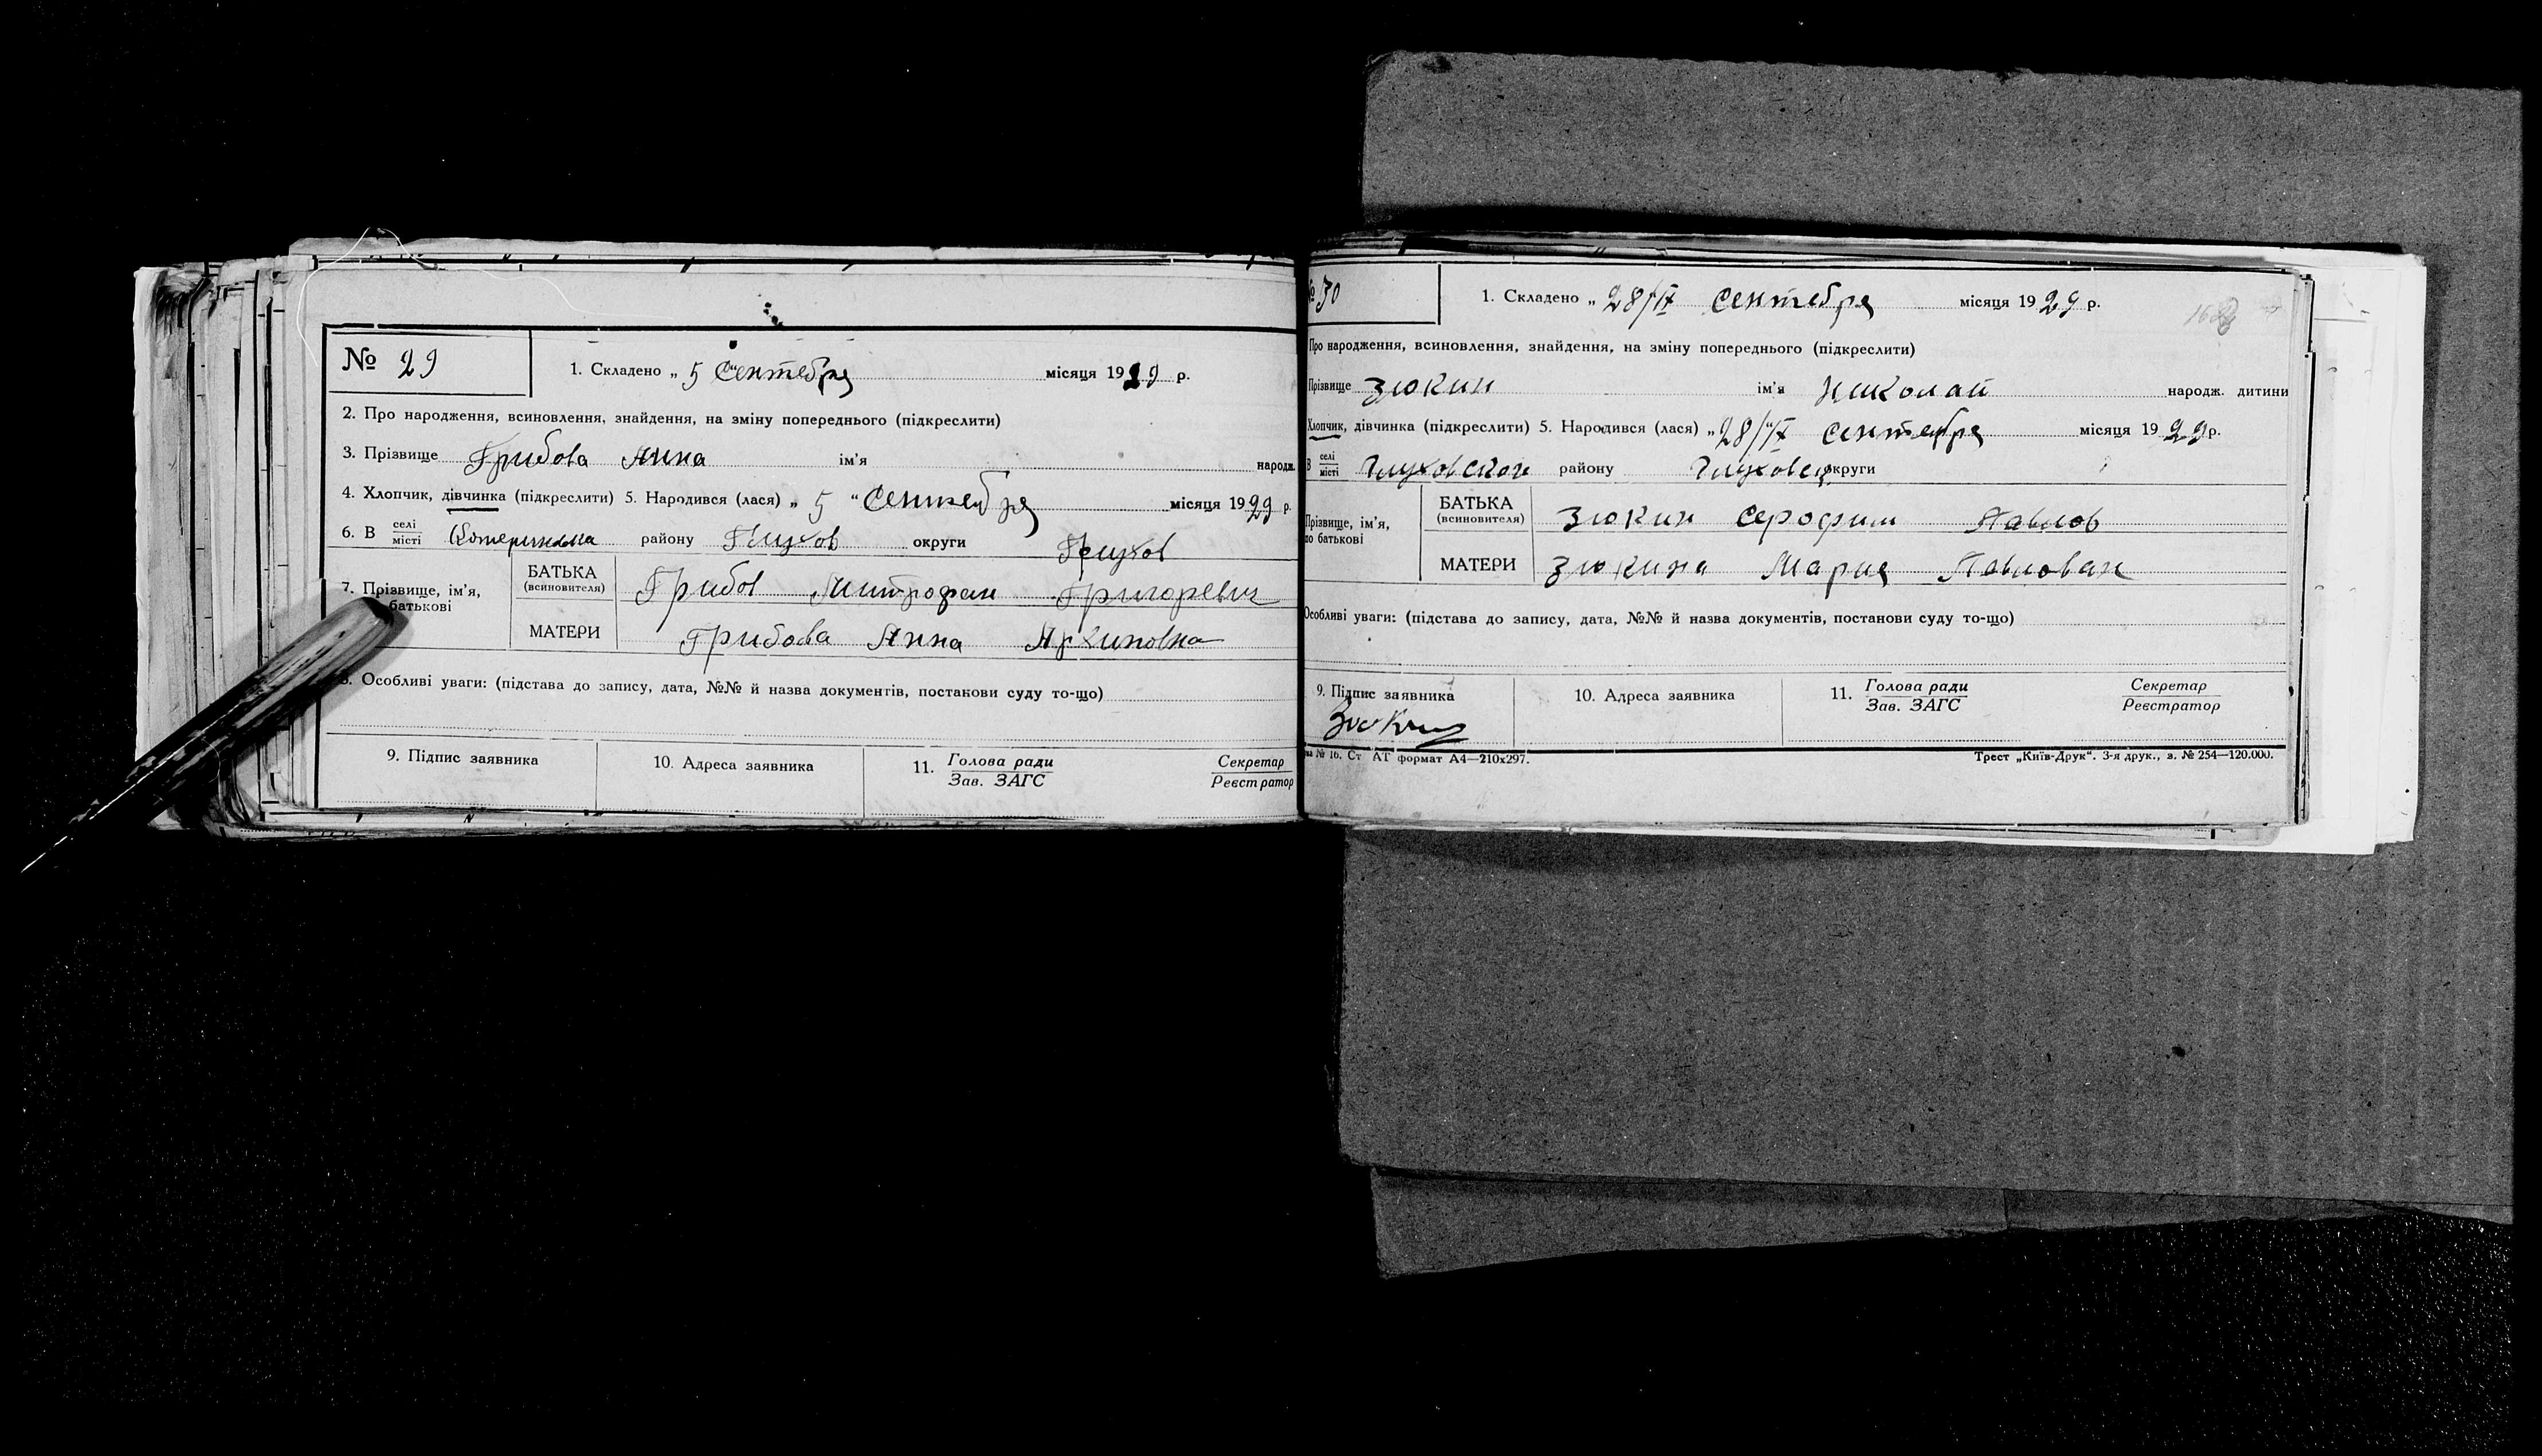 № 29
1. Складено „ 5 Сентебря місяця 1929 р.
2. Про народження, всиновлення, знайдення, на зміну попереднього (підкреслити)
3. Прізвище Грибова Анна ім'я народж.
4. Хлопчик, дівчинка (підкреслити) 5. Народився (лася) „ 5 “ Сентебря місяця 1929 р.
6. В селі/місті района Глухов округи Глухов
7. Прізвище, ім'я, батькові
БАТЬКА (всиновителя) Грибов Митрофан Григоревич
МАТЕРИ Грибова Анна Архиповна
8. Особливі уваги: (підстава до запису, дата, №№ й назва документів, постанови суду то-що)
9. Підпис заявника 10. Адреса заявника 11. Голова ради / Зав. ЗАГС Секретар / Реєстратор
№ 30
1. Складено „ 28/IX Сентебря місяця 1929 р.
Про народження, всиновлення, знайдення, на зміну попереднього (підкреслити)
Прізвище Зюкин ім'я Николай народж. дитини
Хлопчик, дівчинка (підкреслити) 5. Народився (лася) „ 28/IX “ Сентебря місяця 1929 р.
В селі/місті району округи
Прізвище, ім'я, по батькові
БАТЬКА (всиновителя) Зюкин Серофим Павлов
МАТЕРИ Зюкина Мария
Особливі уваги: (підстава до запису, дата, №№ й назва документів, постанови суду то-що)
9. Підпис заявника 10. Адреса заявника 11. Голова ради / Зав. ЗАГС Секретар / Реєстратор
Зюкин
№ 16. Ст АТ формат А4—210х297. Трест „Київ-Друк“. 3-я друк., з. № 254—120.000.